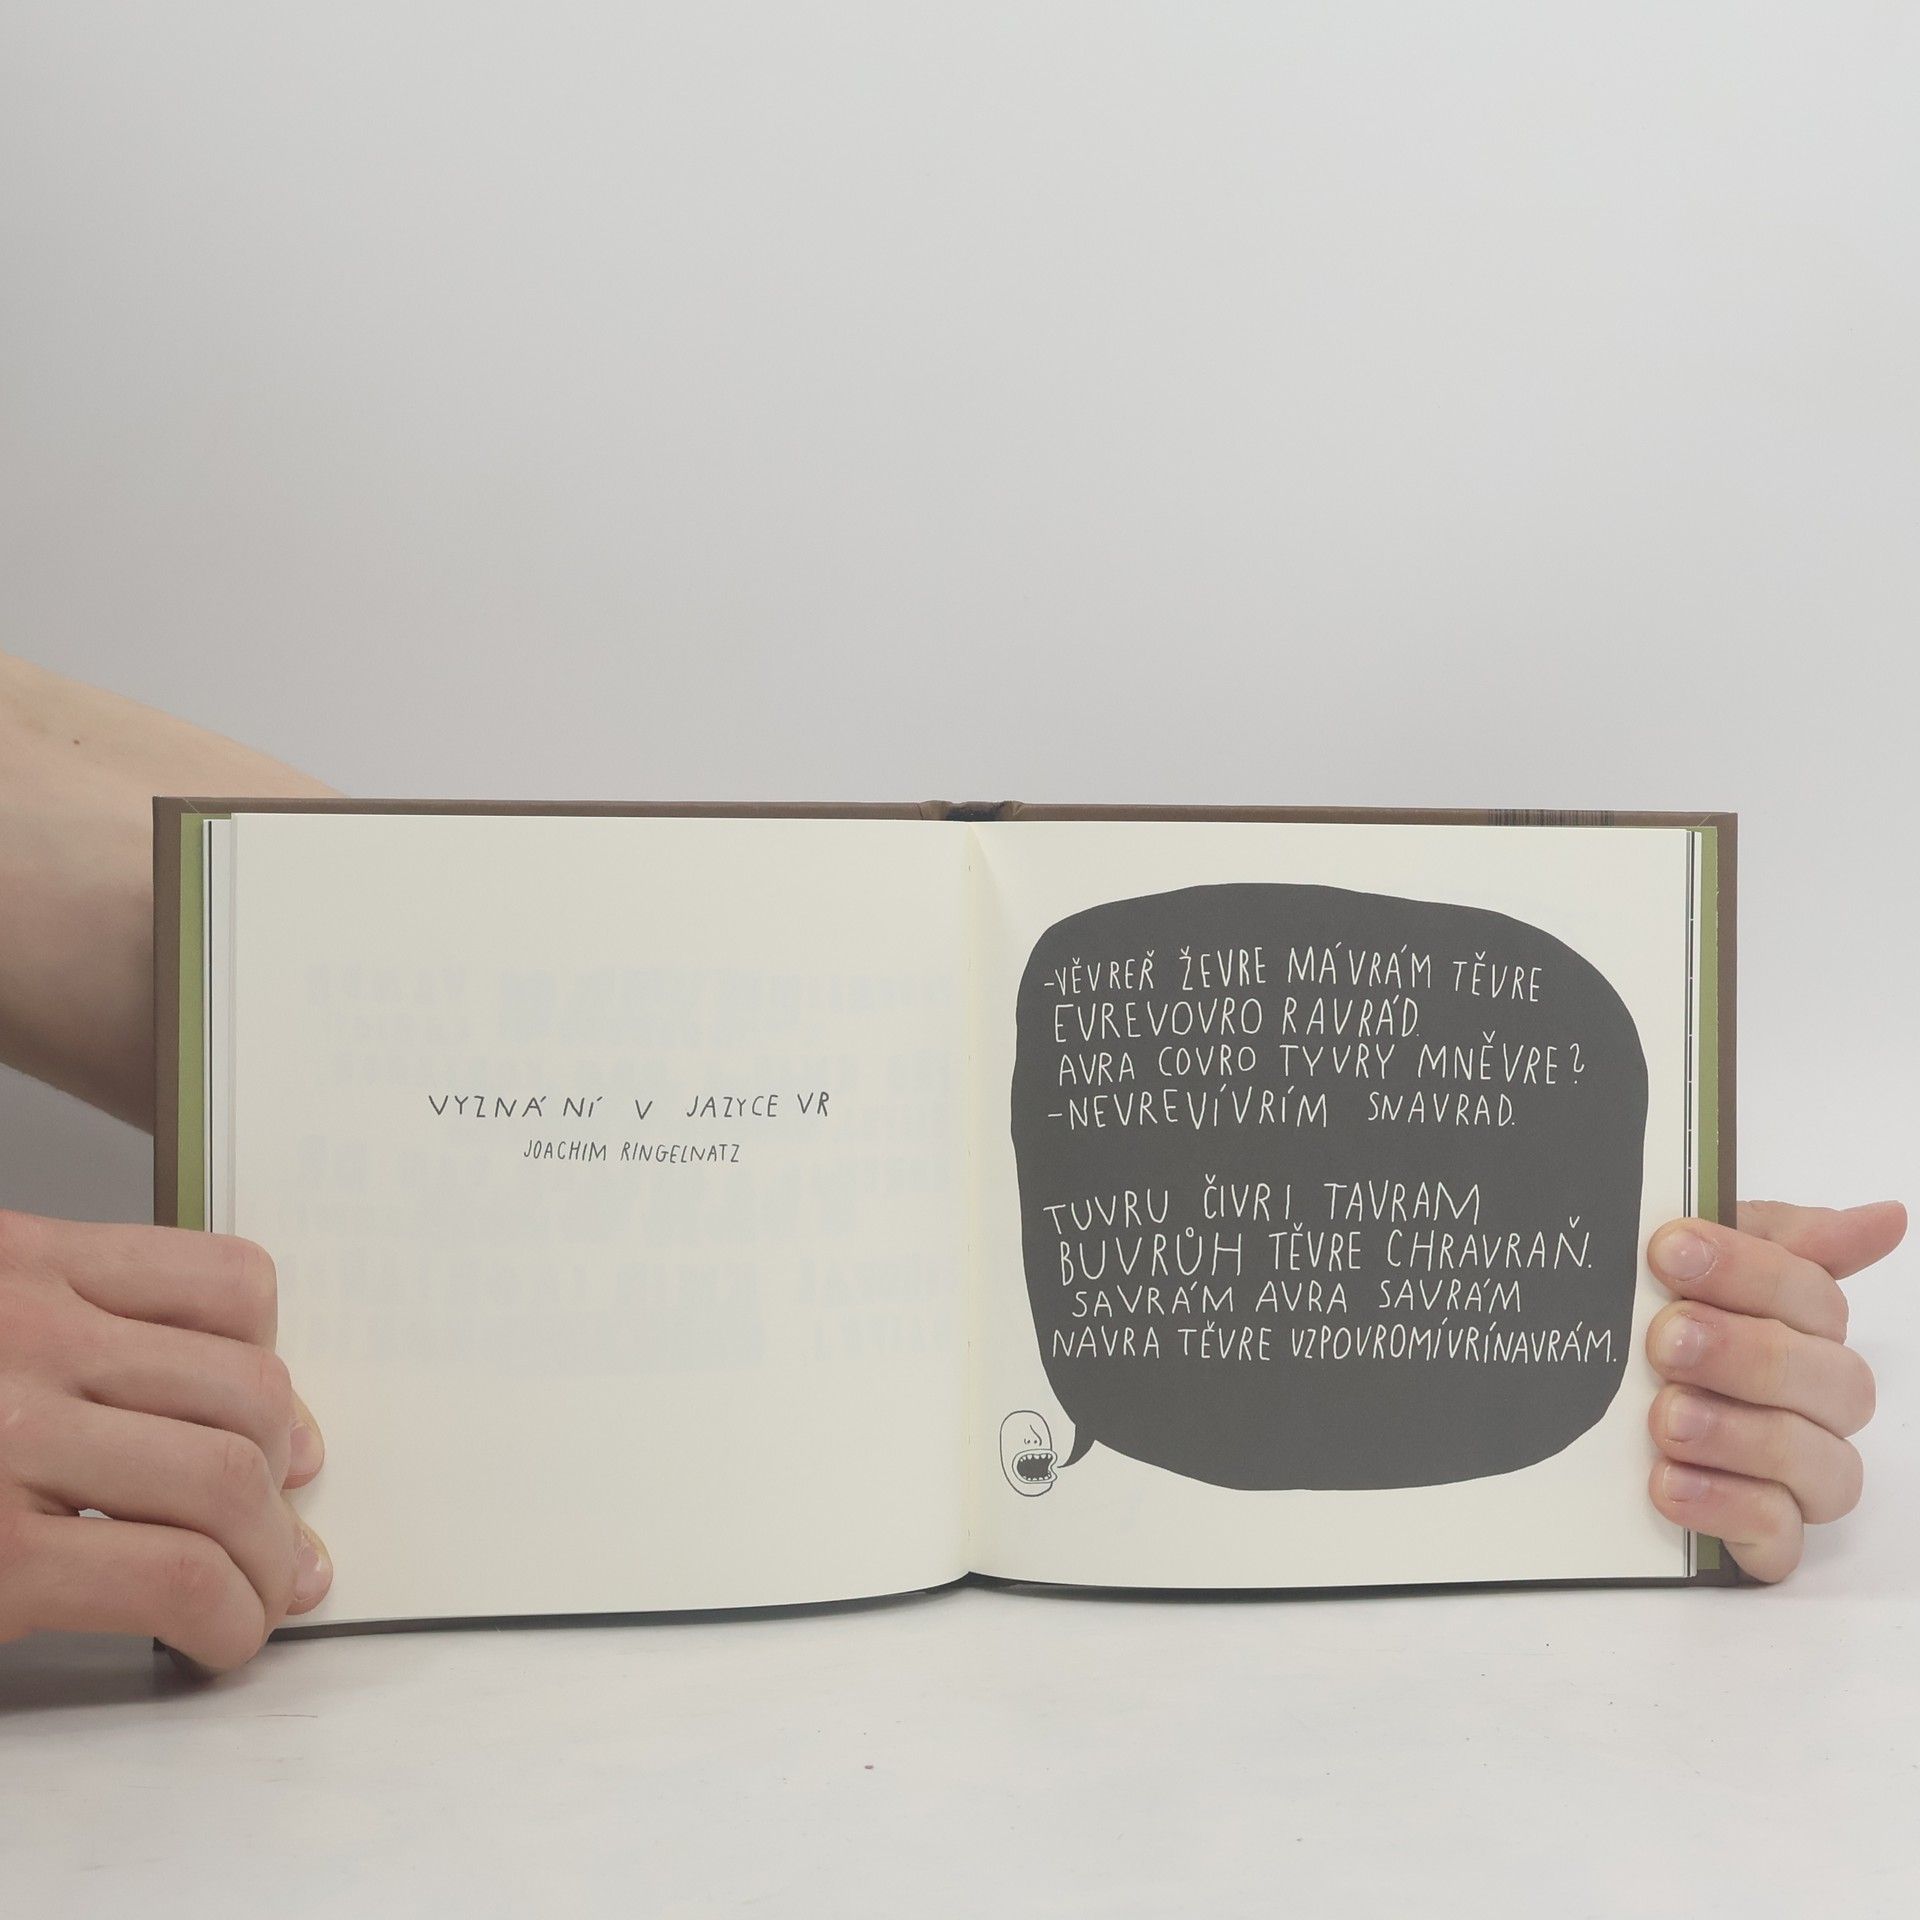 VYZNÁNÍ V JAZYCE VR
JOACHIM RINGELNATZ
-VĚVREŘ ŽEVRE MÁVRÁM TĚVRE
EVREVOVRO RAVRÁD.
AVRA COVRO TYVRY MNĚVRE?
-NEVREVÍVRÍM SNAVRAD.
TUVRU ČIVRI TAVRAM
BUVRŮH TĚVRE CHRAVRAŇ.
SAVRÁM AVRA SAVRÁM
NAVRA TĚVRE VZPOVROMÍVRÍNAVRÁM.